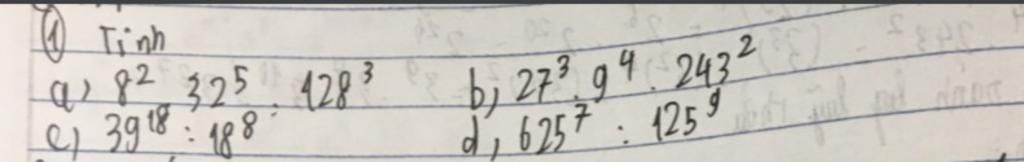 ① Tính
a) 8² . 32⁵ : 128³ b, 27³ . 9⁴ . 243²
c) 39¹⁸ : 18⁸ d, 625⁷ : 125⁹